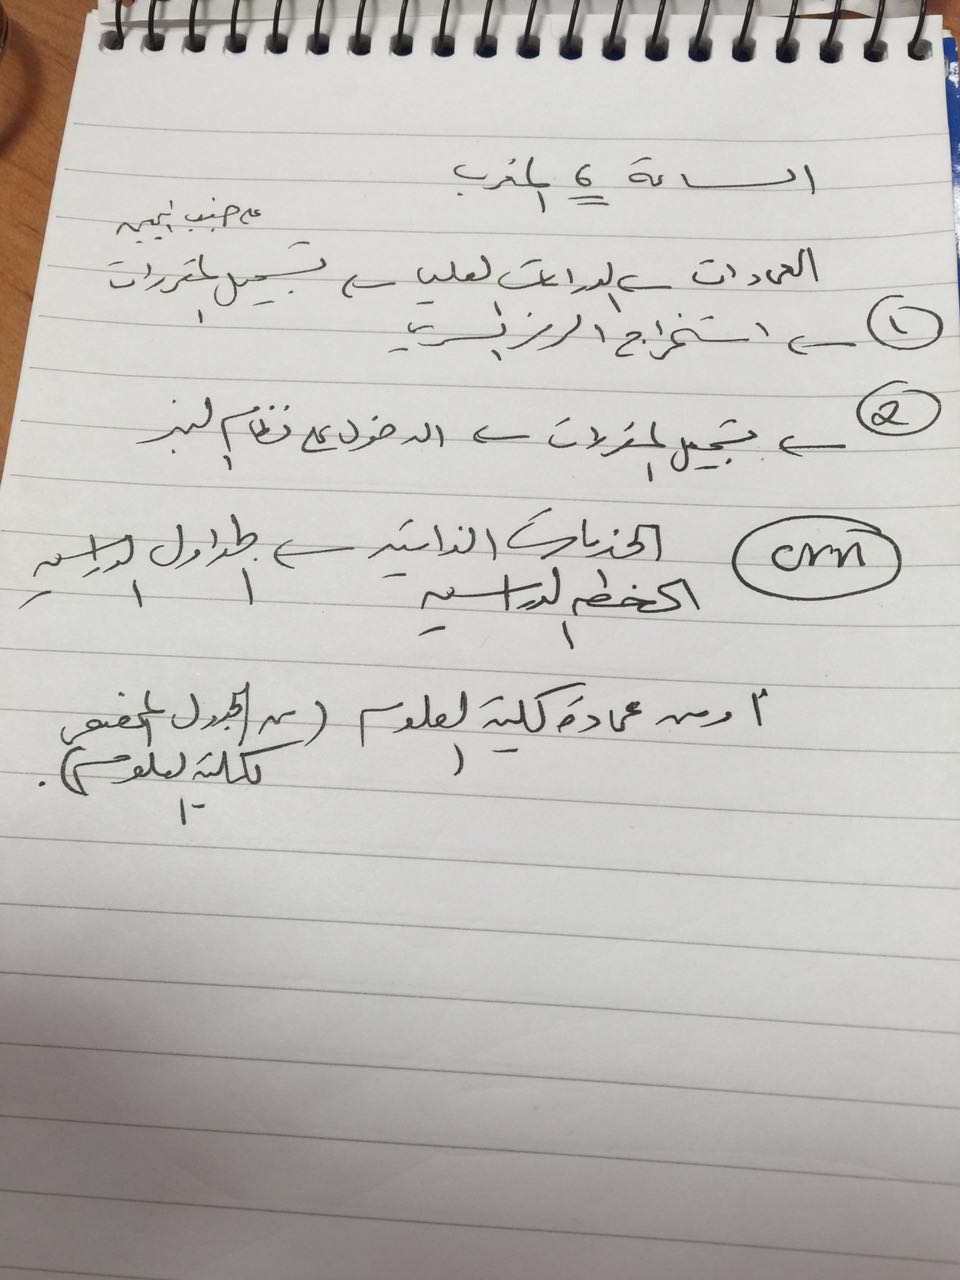 الساعة 6 المغرب
على جنب اليمين
العمادات ← الدراسات العليا ← تسجيل المقررات
1 ← استخراج الرمز السري
2 ← تسجيل المقررات ← الدخول على نظام البنر
cnn الخدمات الذاتية ← الجداول الدراسية
الخطه الدراسيه
أو من عمادة كلية العلوم (من الجدول
لكلية العلوم).